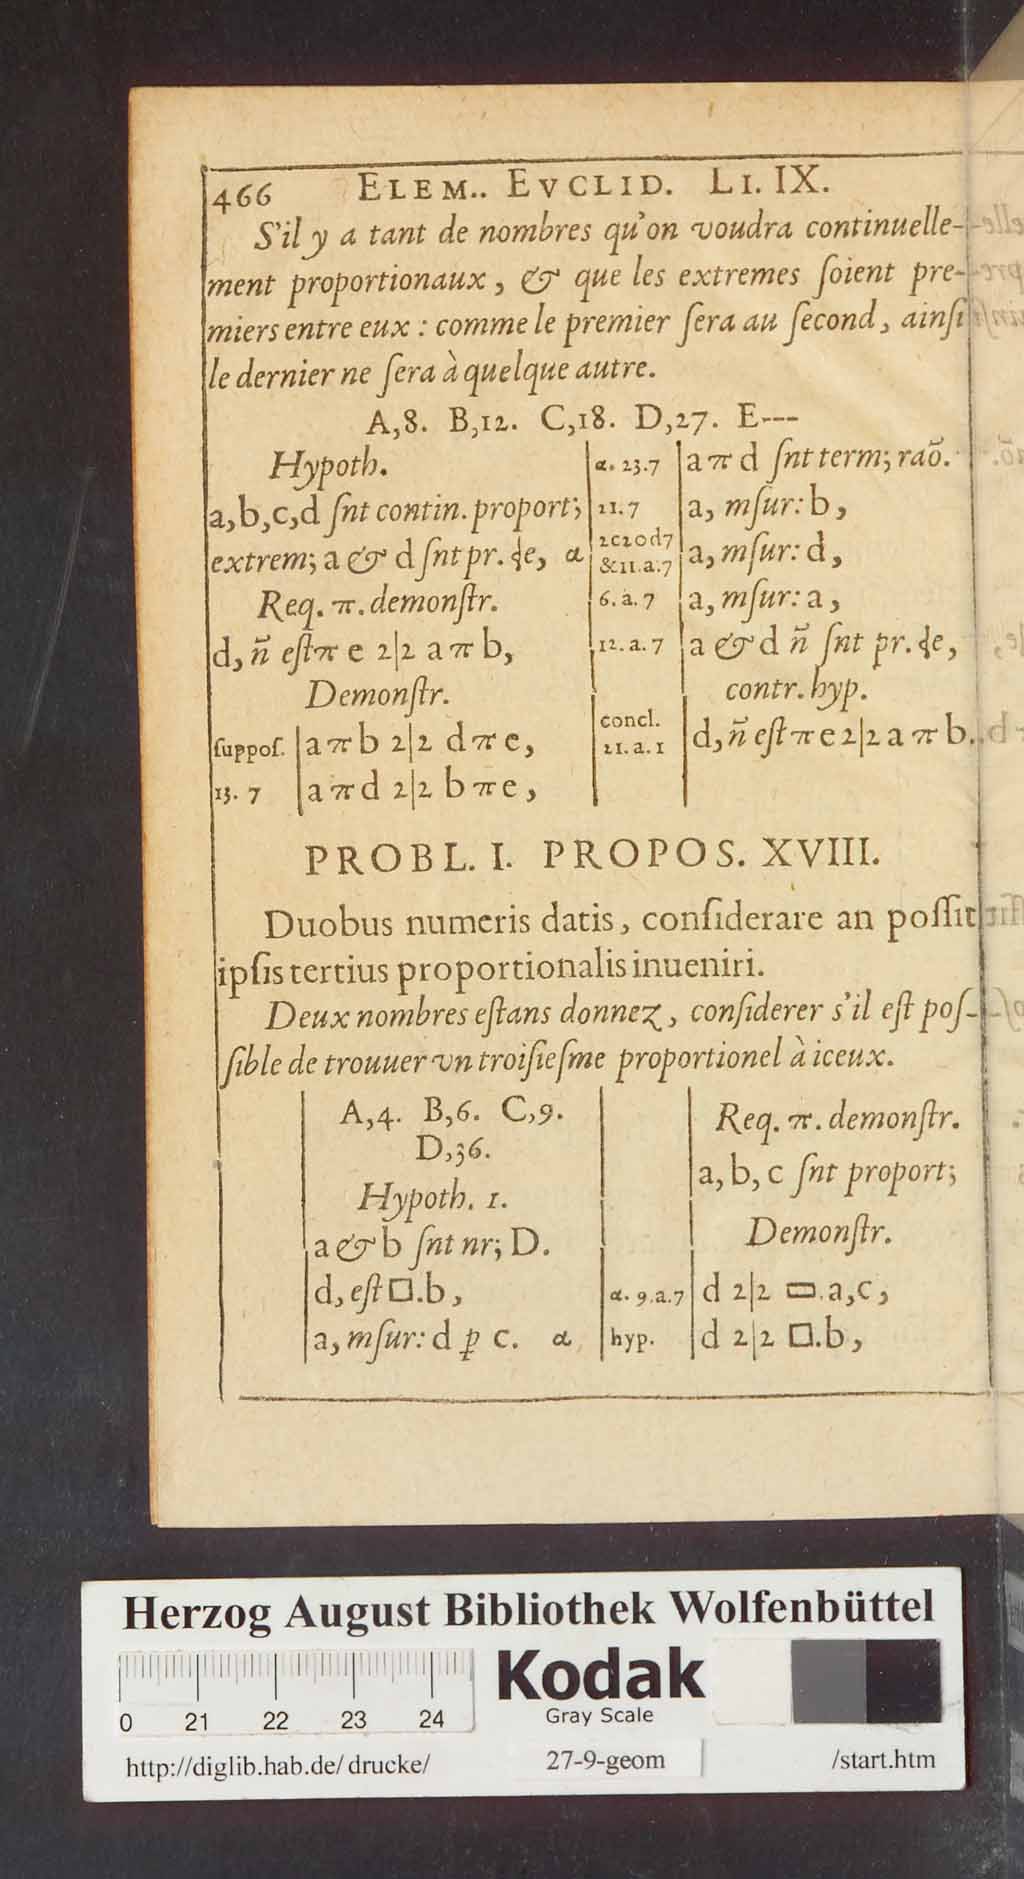 466 ELEM.. EVCLID. LI. IX.
S'il y a tant de nombres qu'on voudra continuelle-
ment proportionaux, & que les extremes ſoient pre-
miers entre eux : comme le premier ſera au ſecond, ainſi
le dernier ne ſera à quelque autre.
A,8. B,12. C,18. D,27. E---
Hypoth.
a,b,c,d ſnt contin. proport;
extrem; a & d ſnt pr. ɖe, α
Req. π. demonſtr.
d, ñ eſt π e 2|2 a π b,
Demonſtr.
ſuppoſ. | a π b 2|2 d π e,
13. 7 | a π d 2|2 b π e,
α. 23.7 | a π d ſnt term; raõ.
21. 7 | a, mſur: b,
2c20d7
&11.a.7 | a, mſur: d,
6. a. 7 | a, mſur: a,
12. a. 7 | a & d ñ ſnt pr. ɖe,
contr. hyp.
concl.
21. a. 1 | d, ñ eſt π e 2|2 a π b.
PROBL. I. PROPOS. XVIII.
Duobus numeris datis, conſiderare an poſſit
ipſis tertius proportionalis inueniri.
Deux nombres eſtans donnez, conſiderer s'il eſt poſ-
ſible de trouuer vn troiſieſme proportionel à iceux.
A,4. B,6. C,9.
D,36.
Hypoth. 1.
a & b ſnt nr; D.
d, eſt □.b,
a, mſur: d ꝑ c. α
Req. π. demonſtr.
a, b, c ſnt proport;
Demonſtr.
α. 9.a.7 | d 2|2 ▭.a,c,
hyp. | d 2|2 □.b,
Herzog August Bibliothek Wolfenbüttel
0 21 22 23 24
Kodak
Gray Scale
http://diglib.hab.de/drucke/ 27-9-geom /start.htm